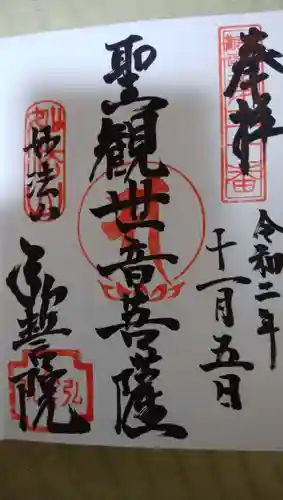 奉拝
令和二年
十一月五日
聖観世音菩薩
妙法山
弘誓院